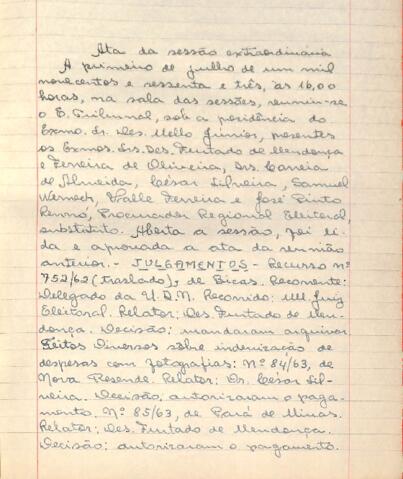 Ata da sessão extraordinária
A primeiro de julho de um mil
novecentos e sessenta e três, às 16,00
horas, na sala das sessões, reuniu-se
o E. Tribunal, sob a presidência do
Exmo. Sr. Des. Mello Júnior, presentes
os Exmos. Srs. Des. Furtado de Mendonça
e Ferreira de Oliveira, Drs. Correia
de Almeida, César Silveira, Samuel
Werneck, Valle Ferreira e José Pinto
Renno, Procurador Regional Eleitoral,
substituto. Aberta a sessão, foi li-
da e aprovada a ata da reunião
anterior. - JULGAMENTOS - Recurso nº
752/62 (traslado), de Bicas. Recorrente:
Delegado da U.D.N. Recorrido: MM. Juiz
Eleitoral. Relator: Des. Furtado de Men-
donça. Decisão: mandaram arquivar
Feitos Diversos sobre indenização de
despesas com fotografias: Nº 84/63, de
Nova Resende. Relator: Dr. César Sil-
veira. Decisão: autorizaram o paga-
mento. Nº 85/63, de Pará de Minas.
Relator: Des. Furtado de Mendonça.
Decisão: autorizaram o pagamento.